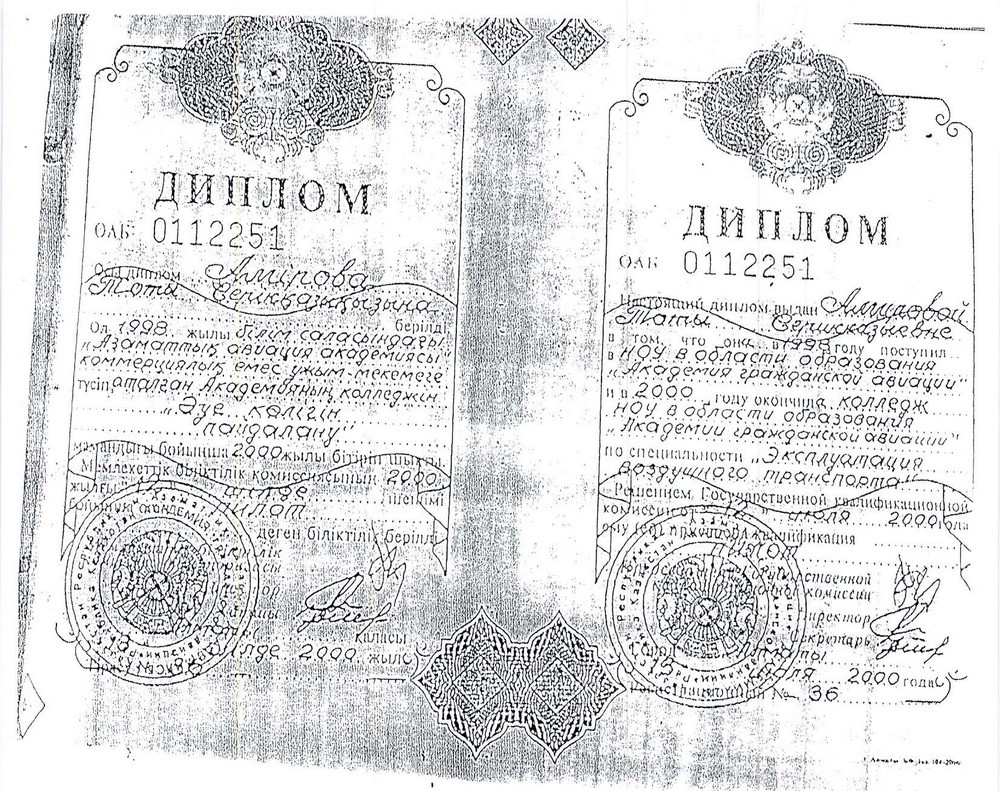 ДИПЛОМ
ОАБ 0112251
Осы диплом Амирова
Тоты Серикказықызына
берілді
Ол 1998 жылы білім саласындағы
„Азаматтық авиация академиясы"
коммерциялық емес ұжым-мекемеге
түсіп аталған Академияның колледжін
„Әуе көлігін
пайдалану"
мамандығы бойынша 2000 жылы бітіріп шықты.
Мемлекеттік біліктілік комиссиясының 2000
жылғы шілде шешімі
бойынша пилот
деген біліктілік берілді
қаласы
шілде 2000 жыл
ДИПЛОМ
ОАБ 0112251
Настоящий диплом выдан Амировой
Тоты Серикказыевне
в том, что она в 1998 году поступил
в НОУ в области образования
„Академия гражданской авиации"
и в 2000 году окончила колледж
НОУ в области образования
„Академии гражданской авиации"
по специальности „Эксплуатация
воздушного транспорта"
Решением Государственной квалификационной
комиссии от июля 2000 года
ему (ей) присвоена квалификация
пилот
комиссии
Директор
Секретарь
июля 2000 года
Регистрационный № 36